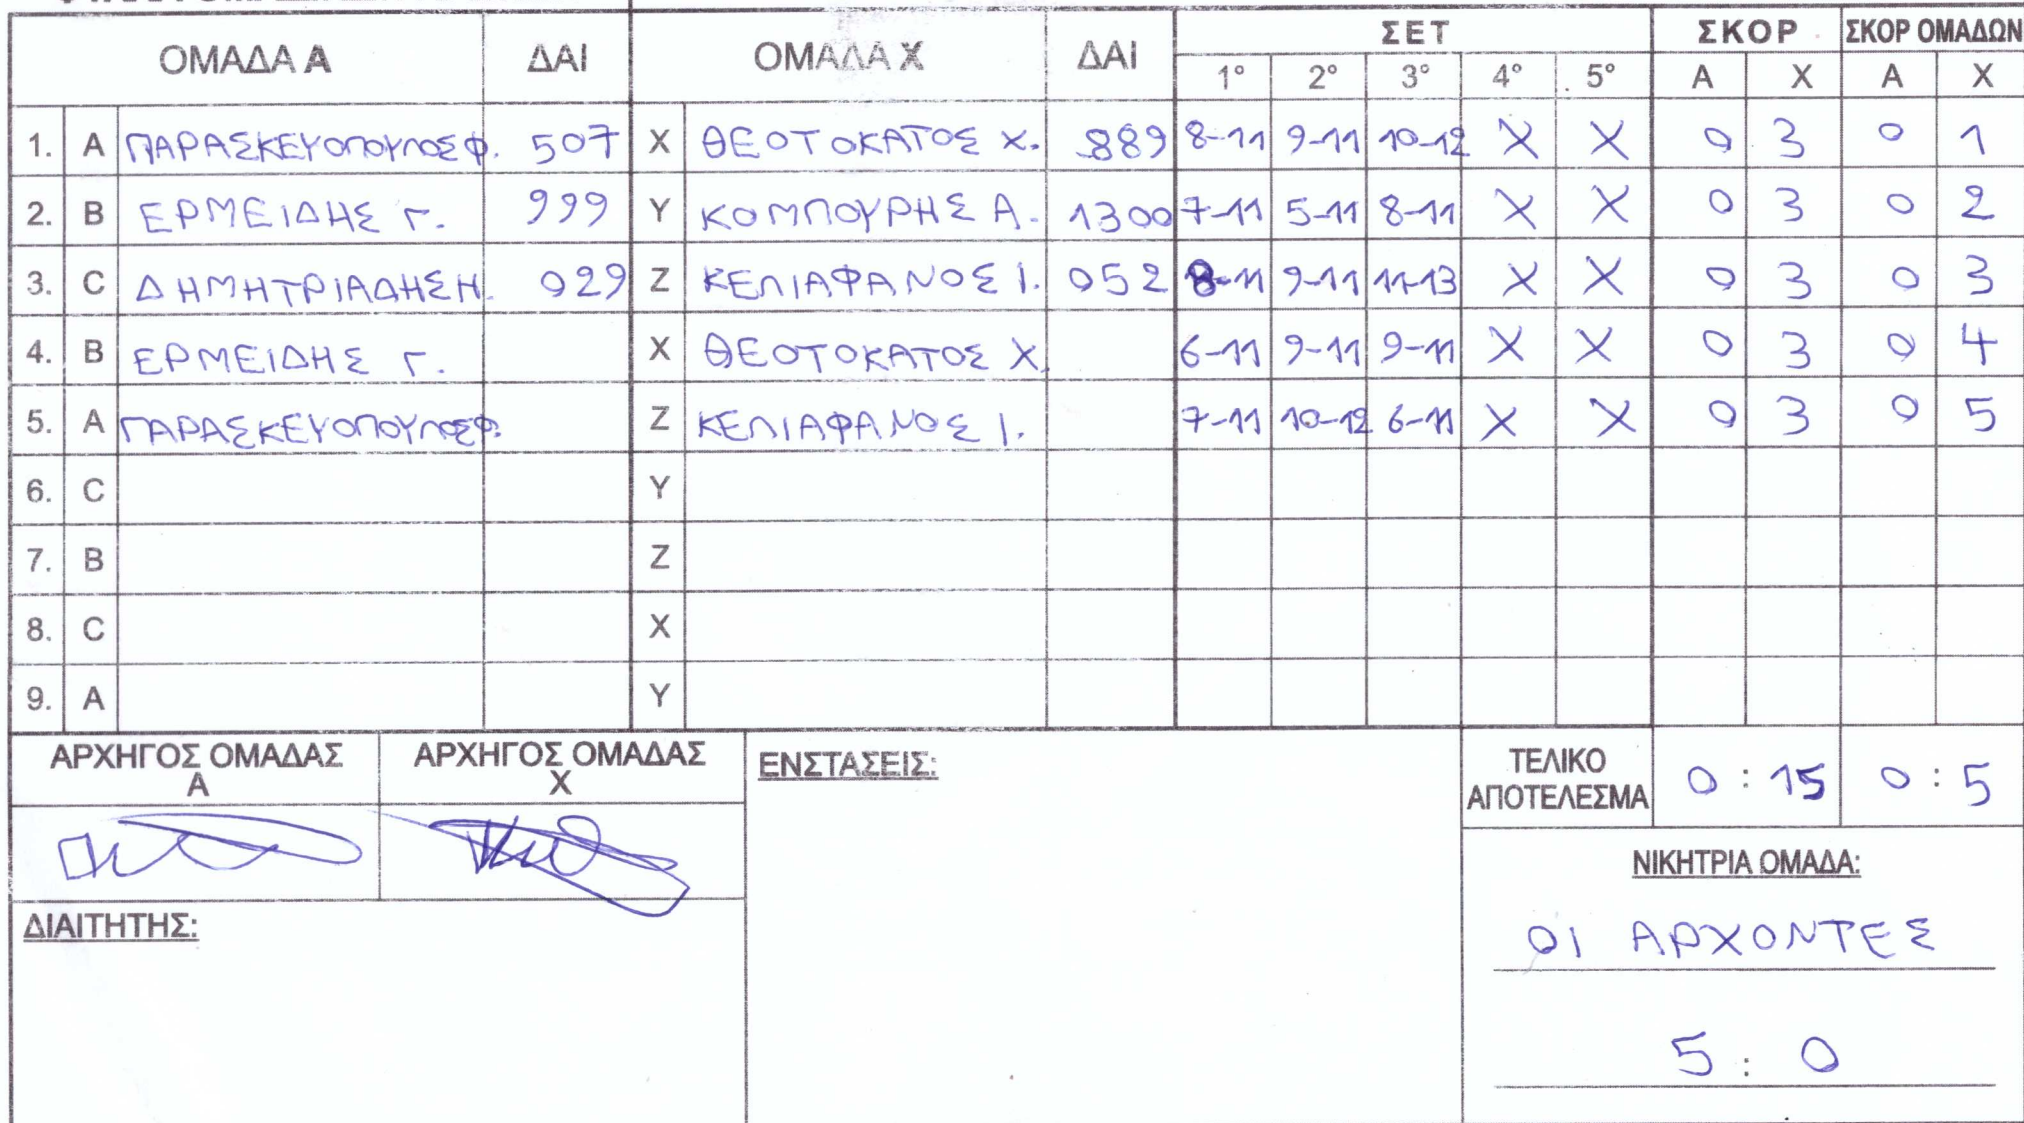 ΟΜΑΔΑ Α ΔΑΙ ΟΜΑΔΑ Χ ΔΑΙ ΣΕΤ ΣΚΟΡ ΣΚΟΡ ΟΜΑΔΩΝ
1° 2° 3° 4° 5° Α Χ Α Χ
1. A ΠΑΡΑΣΚΕΥΟΠΟΥΛΟΣ Φ. 507 X ΘΕΟΤΟΚΑΤΟΣ Χ. 889 8-11 9-11 10-12 X X 0 3 0 1
2. B ΕΡΜΕΙΔΗΣ Γ. 999 Y ΚΟΜΠΟΥΡΗΣ Α. 1300 7-11 5-11 8-11 X X 0 3 0 2
3. C ΔΗΜΗΤΡΙΑΔΗΣ Η. 029 Z ΚΕΛΙΑΦΑΝΟΣ Ι. 052 8-11 9-11 11-13 X X 0 3 0 3
4. B ΕΡΜΕΙΔΗΣ Γ. X ΘΕΟΤΟΚΑΤΟΣ Χ. 6-11 9-11 9-11 X X 0 3 0 4
5. A ΠΑΡΑΣΚΕΥΟΠΟΥΛΟΣ Φ. Z ΚΕΛΙΑΦΑΝΟΣ Ι. 7-11 10-12 6-11 X X 0 3 0 5
6. C Y
7. B Z
8. C X
9. A Y
ΑΡΧΗΓΟΣ ΟΜΑΔΑΣ Α
ΑΡΧΗΓΟΣ ΟΜΑΔΑΣ Χ
ΕΝΣΤΑΣΕΙΣ:
ΤΕΛΙΚΟ ΑΠΟΤΕΛΕΣΜΑ 0 : 15 0 : 5
ΔΙΑΙΤΗΤΗΣ:
ΝΙΚΗΤΡΙΑ ΟΜΑΔΑ:
ΟΙ ΑΡΧΟΝΤΕΣ
5 : 0